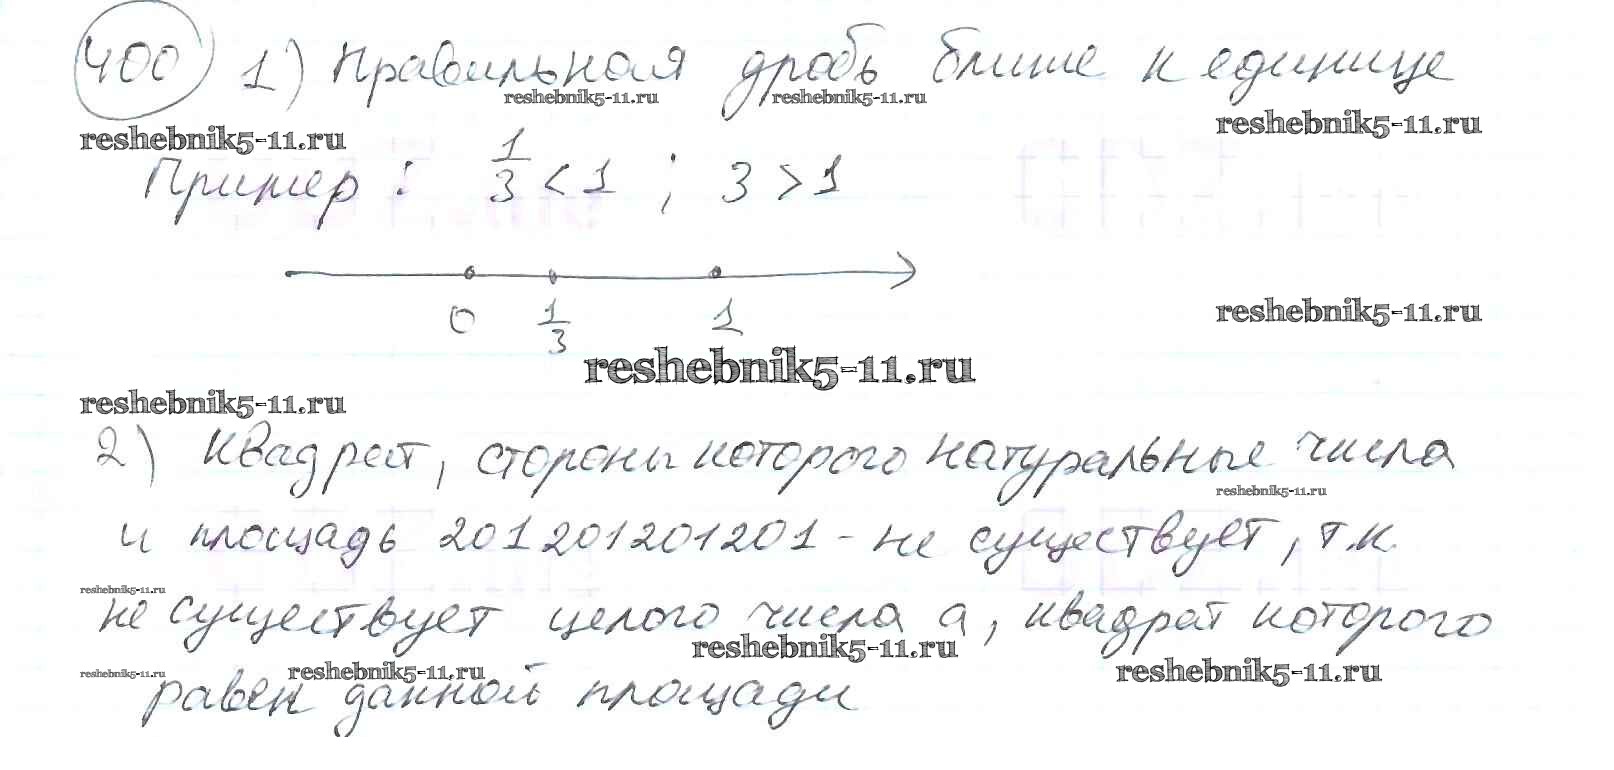 400 1) Правильная дробь ближе к единице
reshebnik5-11.ru reshebnik5-11.ru
reshebnik5-11.ru reshebnik5-11.ru
Пример: 1/3 < 1 ; 3 > 1
0 1/3 1
reshebnik5-11.ru
reshebnik5-11.ru
reshebnik5-11.ru
2) Квадрат, стороны которого натуральные числа
reshebnik5-11.ru
и площадь 201201201201 - не существует, т.к.
reshebnik5-11.ru
не существует целого числа а, квадрат которого
reshebnik5-11.ru
reshebnik5-11.ru reshebnik5-11.ru reshebnik5-11.ru
равен данной площади